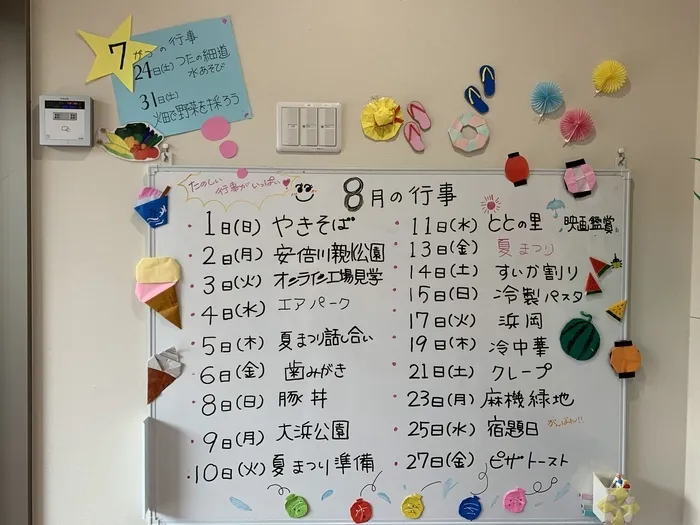 7
がつの行事
24日(土) つたの細道
水あそび
31日(土)
畑で野菜を採ろう
たのしい
行事がいっぱい
8月の行事
1日(日) やきそば
2日(月) 安倍川親水公園
3日(火) オンライン工場見学
4日(水) エアパーク
5日(木) 夏まつり話し合い
6日(金) 歯みがき
8日(日) 豚丼
9日(月) 大浜公園
10日(火) 夏まつり準備
11日(水) ととの里 映画鑑賞
13日(金) 夏まつり
14日(土) すいか割り
15日(日) 冷製パスタ
17日(火) 浜岡
19日(木) 冷中華
21日(土) クレープ
23日(月) 麻機緑地
25日(水) 宿題日 がんばれ!!
27日(金) ピザトースト